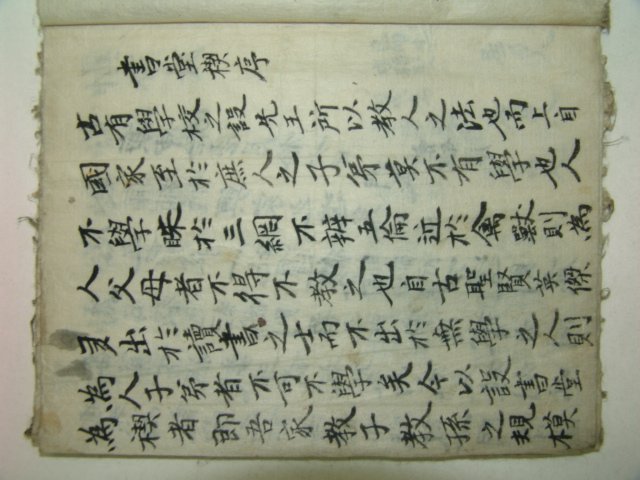 書堂楔序
古有學校之設先王所以教人之法也而上自
國家至於庶人之子弟莫不有學也人
不學昧於三綱不辨五倫近於禽獸則為
人父母者不得不教之也自古聖賢英傑
多出於讀書之士而不出於無學之人則
為人子弟者不可不學矣今以設書堂
為楔者即吾家教子教孫之規模